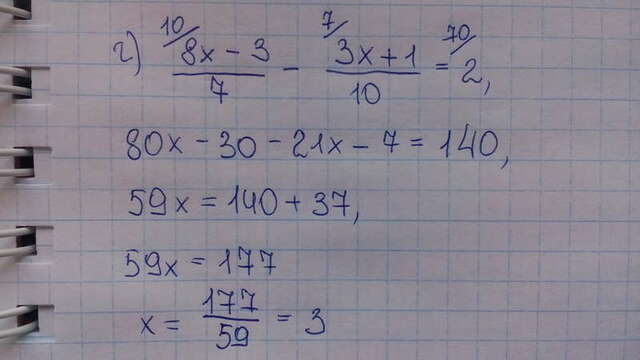 г) 10/ (8x - 3)/7 - 7/ (3x + 1)/10 = 70/ 2,
80x - 30 - 21x - 7 = 140,
59x = 140 + 37,
59x = 177
x = 177/59 = 3